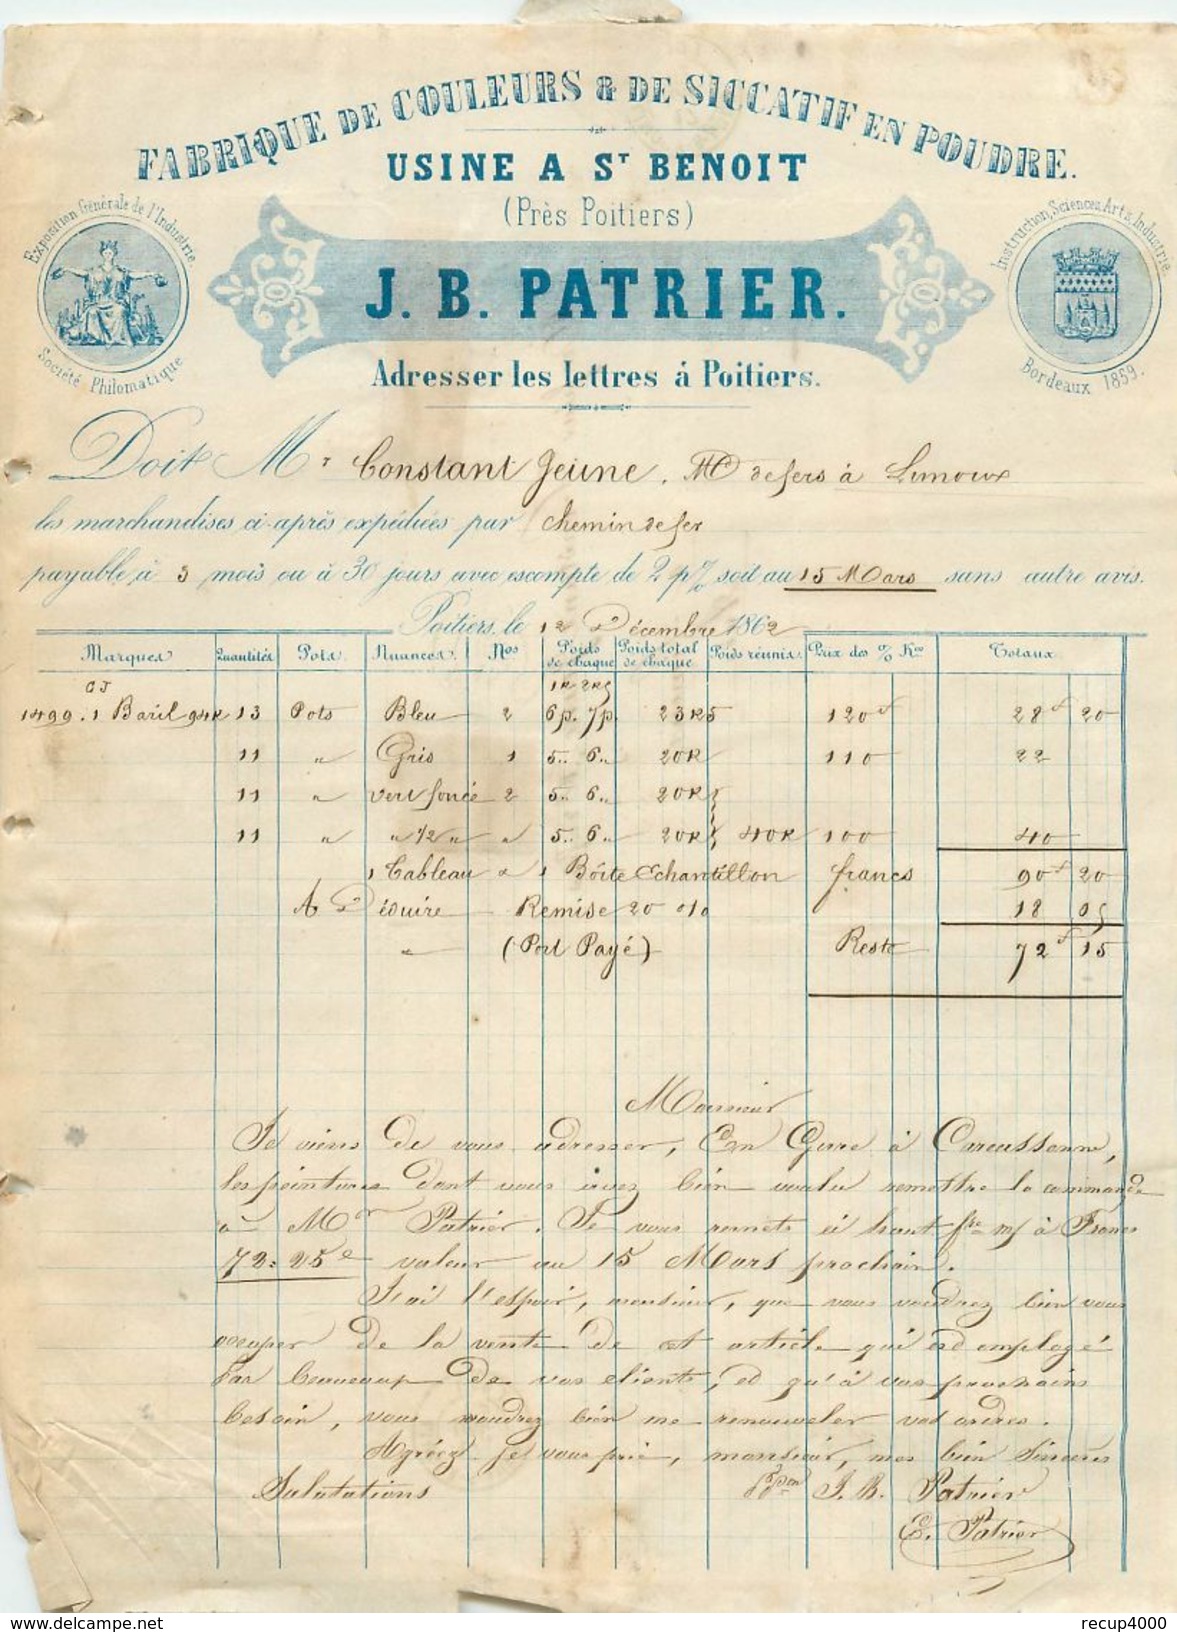 FABRIQUE DE COULEURS & DE SICCATIF EN POUDRE.
USINE A St BENOIT
(Près Poitiers)
Exposition Générale de l'Industrie.
Société Philomatique
J. B. PATRIER.
Instruction, Sciences, Art & Industrie.
Bordeaux 1859.
Adresser les lettres à Poitiers.
Doit Mr Constant Jeune, Md de fers à Limoux
les marchandises ci-après expédiées par chemin de fer
payable à 3 mois ou à 30 jours avec escompte de 2 p% soit au 15 Mars sans autre avis.
Poitiers, le 12 Décembre 1862
Marques Quantités Pots Nuances Nos Poids de chaque Poids total de chaque Poids réunis Prix des % Kos Totaux
CJ 1K 2K5
1499. 1 Baril 94K 13 Pots Bleu 2 6p. 7p. 23K5 120f 28f 20
11 " Gris 1 5" 6" 20K 110 22
11 " vert foncé 2 5" 6" 20K
11 " " 1/2 " " 5" 6" 20K 40K 100 40
1 Tableau & 1 Boîte Echantillon francs 90f 20
A Déduire Remise 20 0/0 18 05
" (Port Payé) Reste 72f 15
Monsieur
Je viens de vous adresser, En Gare à Carcassonne,
les peintures dont vous avez bien voulu remettre la commande
à Mon Patrier. Je vous remets ci haut fre m/ à Francs
72.25c valeur au 15 Mars prochain.
J'ai l'espoir, monsieur, que vous voudrez bien vous
occuper de la vente de cet article qui est employé
Par beaucoup de vos clients, et qu'à vos prochains
besoin, vous voudrez bien me renouveler vos ordres.
Agréez je vous prie, monsieur, mes bien sincères
Salutations J. B. Patrier
E. Patrier
recup4000